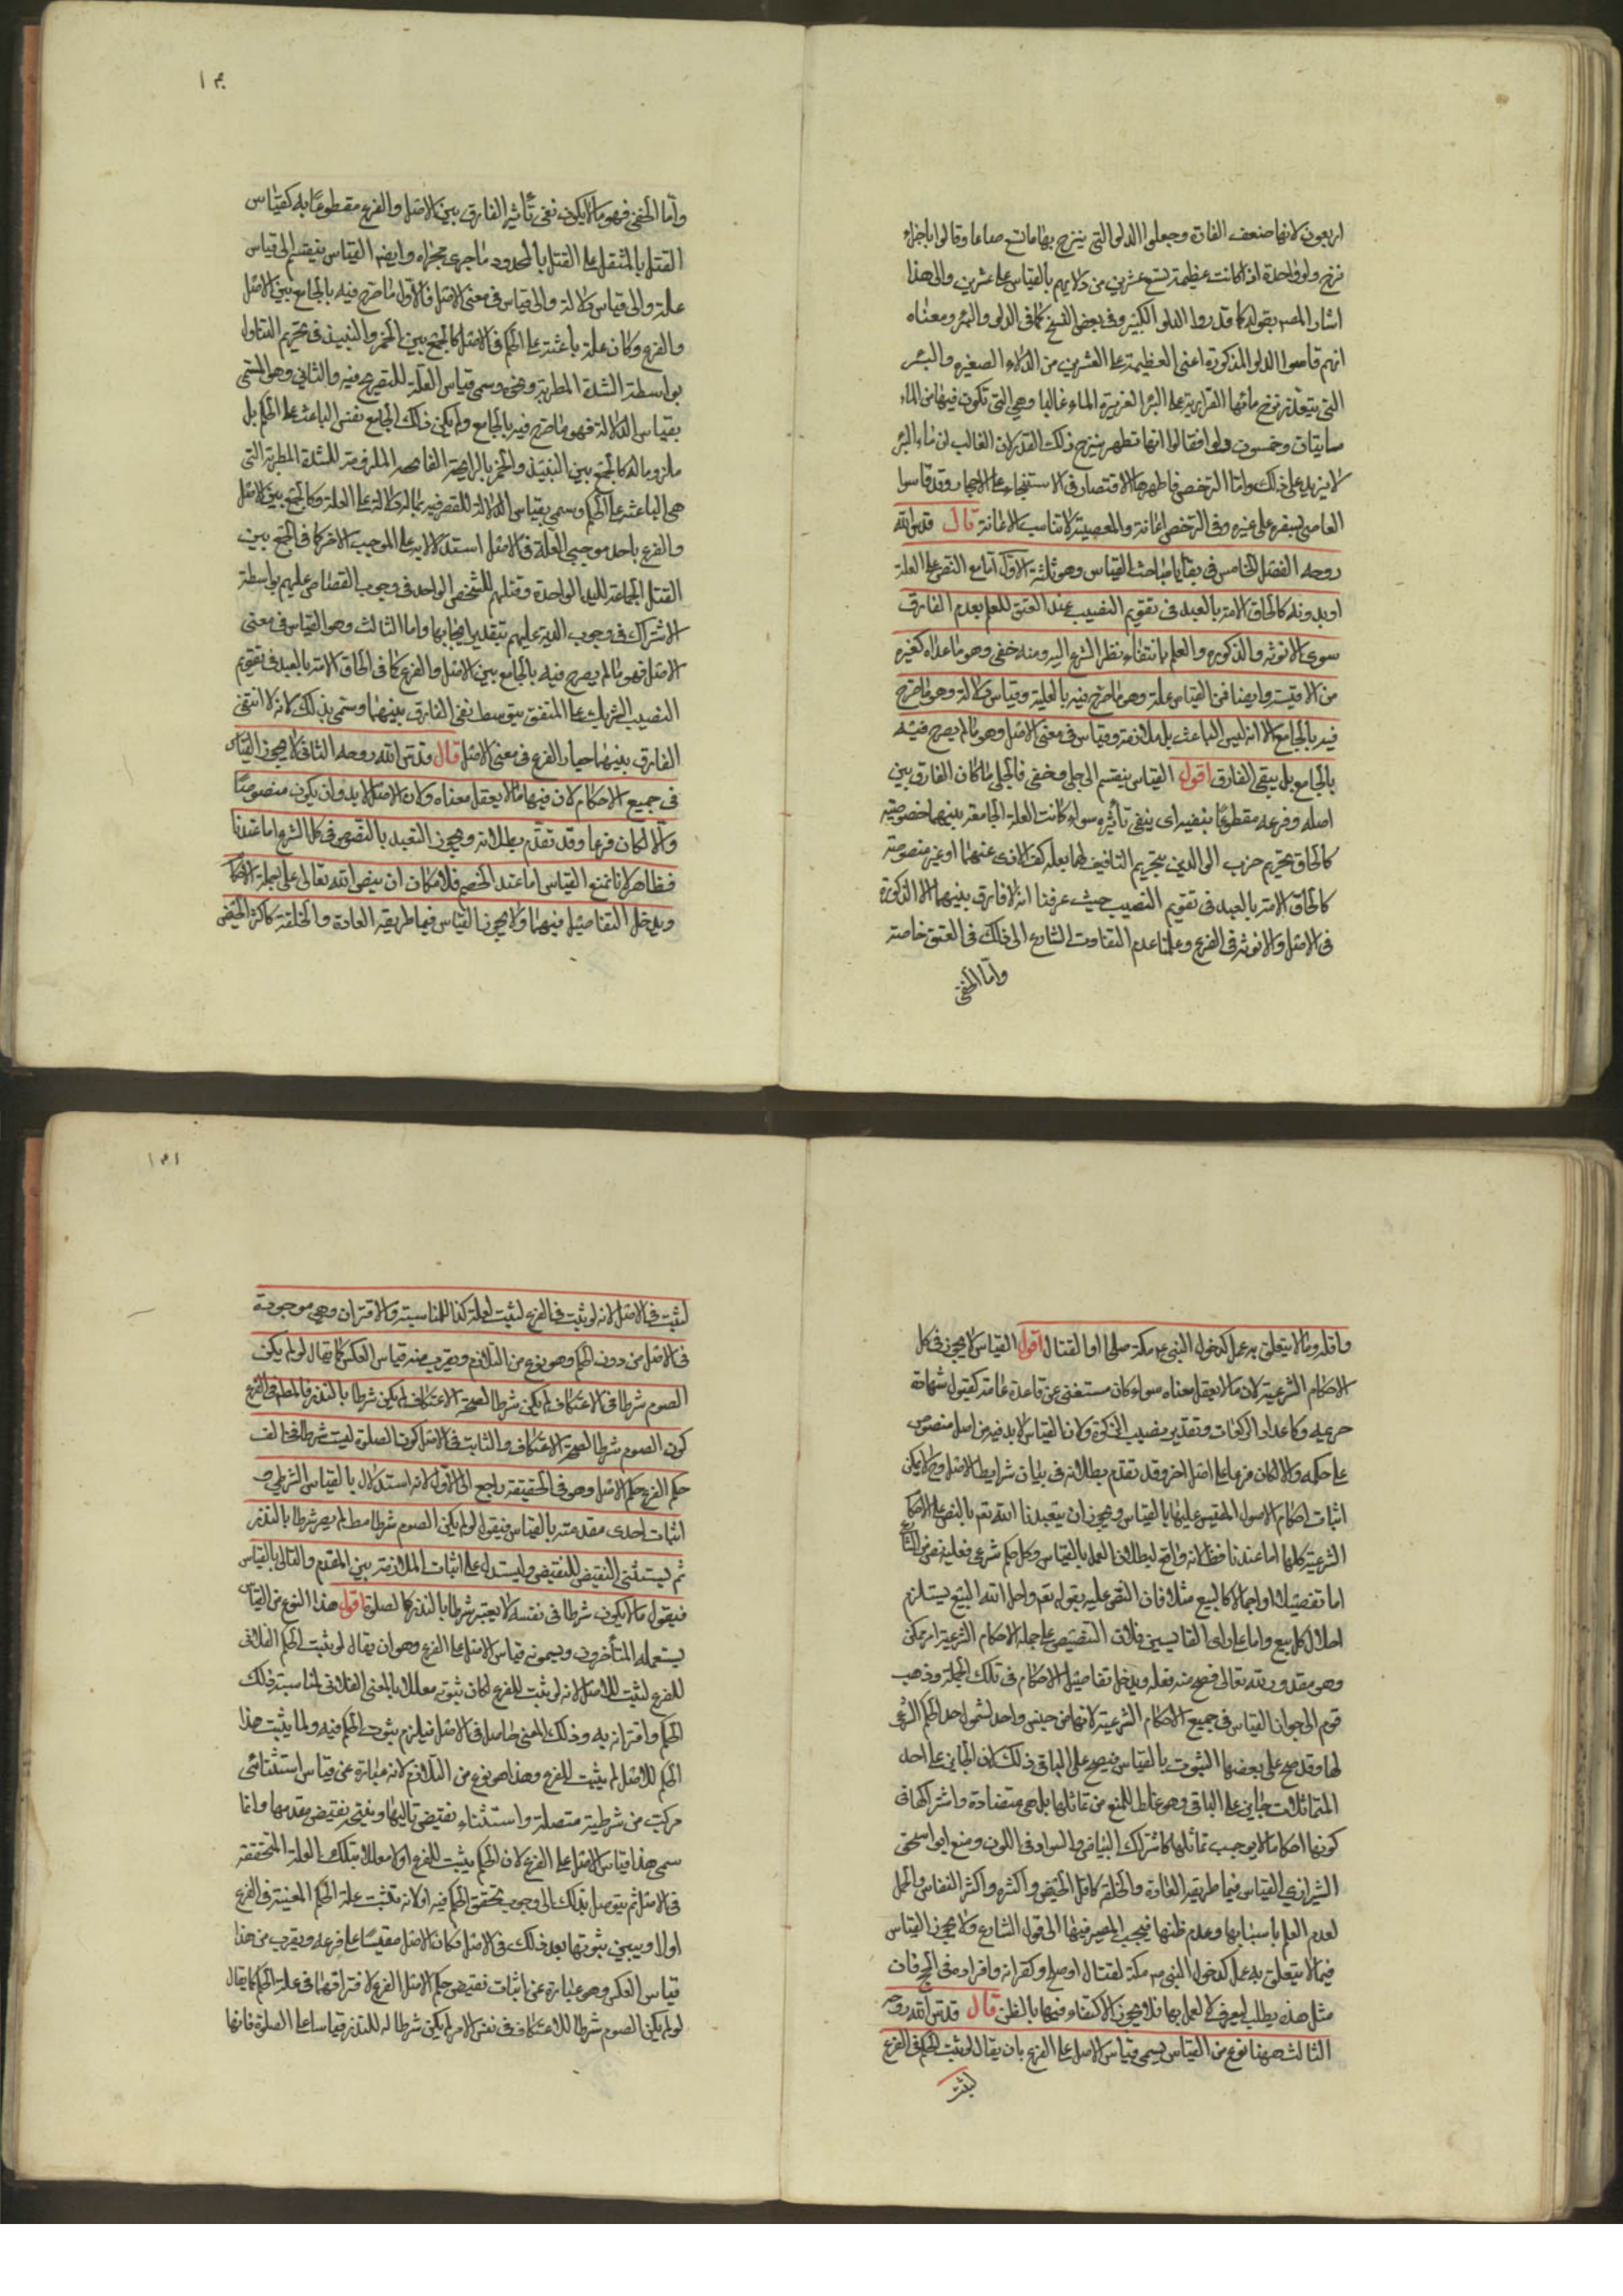 اربعون لانها ضعف الفارة وجعلوا الدلو التى ينزح بها ما تسع صاعا وقالوا باجزاء
نزح ولو واحدة اذا كانت عظيمة تسع عشرين من دلايهم بالقياس على عشرين والى هذا
اشار المصـ بقوله كما قدروا الدلو الكبير وفى بعض النسخ كما فى الدلو والبئر ومعناه
انهم قاسوا الدلو المذكورة اعنى العظيمة على العشرين من الدلاء الصغيره والبئر
التى يتعذر نزح مائها على البئر الغزيرة الماء غالبا وهى التى تكون فيها من الماء
مايتان وخمسون دلوا فقالوا انها تطهر بنزح ذلك القدر لان الغالب ان ماء البئر
لا يزيد على ذلك واما الرخص فاظهرها الاقتصار فى الاستنجاء على الاحجار وقد قاسوا
العاصى بسفره على غيره وفى الرخص اعانة والمعصية لا تناسب الاعانة قال قدس الله
روحه الفصل الخامس فى بقايا مباحث القياس وهو ثلثة الاول اما مع النص على العلة
او بدونه كالحاق الامة بالعبد فى تقويم النصيب عند العتق للعلم بعدم الفارق
سوى الانوثه والذكوره والعلم بانتفاء نظر الشرع اليه ومنه خفى وهو ما عداه كغيره
من الاقيسة وايضا فمن القياس علة وهو ما صرح فيه بالعلية وقياس دلالة وهو ما صرح
فيه بالجامع الا انه ليس الباعث بل ملازمه وقياس فى معنى الاصل وهو ما لم يصرح فيه
بالجامع بل ينفى الفارق اقول القياس ينقسم الى جلى وخفى فالجلى ما كان الفارق بين
اصله وفرعه مقطوعا بنفيه اى ينفى تاثيره سواء كانت العلة الجامعة بينهما منصوصة
كالحاق تحريم ضرب الوالدين بتحريم التافيف لهما بعلة كف الاذى عنهما او غير منصوصة
كالحاق الامة بالعبد فى تقويم النصيب حيث عرفنا انه لا فارق بينهما الا الذكورة
فى الاصل والانوثه فى الفرع وعلمنا عدم التفات الشارع الى ذلك فى العتق خاصة
واما الخفى
واما الخفى فهو ما لا يكون نفى تأثير الفارق بين الاصل والفرع مقطوعًا به كقياس
القتل بالمثقل على القتل بالمحدد وما جرى مجراه وايضا القياس ينقسم الى قياس
علة والى قياس دلالة والى قياس فى معنى الاصل فالاول ما صرح فيه بالجامع بين الاصل
والفرع وكان علة باعثة على الحكم فى الاصل كالجمع بين الخمر والنبيذ فى تحريم التناول
بواسطة الشدة المطربة ونحوه وسمى قياس العلة للتصريح فيه والثانى وهو المسمى
بقياس الدلالة فهو ما صرح فيه بالجامع ولم يكن ذلك الجامع نفس الباعث على الحكم بل
ملزوما له كالجمع بين النبيذ والخمر بالرايحة الملازمة للشدة المطربة التى
هى الباعثة على الحكم وسمى بقياس الدلالة للتصريح فيه بما له دلالة على العلة وكالجمع بين الاصل
والفرع باحد موجبى العلة فى الاصل استدلالا به على الموجب الاخر كما فى الجمع بين
القتل الجماعة لليد الواحدة وقتلهم للشخص الواحد فى وجوب القصاص عليهم بواسطة
الاشتراك فى وجوب الدية عليهم بتقدير ايجابها واما الثالث وهو القياس فى معنى
الاصل فهو ما لم يصرح فيه بالجامع بين الاصل والفرع كما فى الحاق الامة بالعبد فى تقويم
النصيب الشريك على المعتق بتوسط نفى الفارق بينهما وسمى بذلك لانه لما انتفى
الفارق بينهما صار الفرع فى معنى الاصل قال قدس الله روحه الثانى لا يجوز القياس
فى جميع الاحكام لان فيها ما لا يعقل معناه ولان الاصل لا بد وان يكون منصوصًا
والا لكان فرعا وقد تقدم بطلانه ويجوز التعبد بالنصوص فى كل الشرع اما عندنا
فظاهر لانا نمنع القياس اما عند الخصم فلامكان ان ينص الله تعالى على جملة الاحكام
ويدخل التفاصيل فيها ولا يجوز القياس فيما طريقه العادة والخلقة كاكثر الحيض
واقله وما لا يتعلق به عمل كدخول النبى عـ مكة صلحا او القتال اقول القياس لا يجوز فى كل
الاحكام الشرعية لان ما لا يعقل معناه سواء كان مستثنى عن قاعدة عامة كقبول شهادة
خزيمه وكاعداد الركعات وتقدير نصيب الزكوة ولان القياس لا بد فيه من اصل منصوص
على حكمه والا لكان فرعا على اصل اخر وقد تقدم بطلانه فى بيان شرايط الاصل فلا يمكن
اثبات احكام الاصول المقيس عليها بالقياس ويجوز ان يتعبدنا الله تع بالنص على الاحكام
الشرعية كلها اما عندنا فظ لانه واضح لبطلان العمل بالقياس وكل حكم شرعى فعليه نص من الشارع
اما تفصيلا او اجمالا كالبيع مثلا فان النص عليه بقوله تع واحل الله البيع يستلزم
احلال كل بيع واما على راى القايسين فلان التنصيص على جملة الاحكام الشرعية امر ممكن
وهو مقدور لله تعالى فصح منه فعله ويدخل تفاصيل الاحكام فى تلك الجملة وذهب
قوم الى جواز القياس فى جميع الاحكام الشرعية لانها من جنس واحد لشمول حد الحكم الشرعى
لها وقد صح على بعضها الثبوت بالقياس فيصح على الباقى ذلك لان الجايز على احد
المتماثلات جايز على الباقى وهو غلط للمنع من تماثلها بل هى متضادة واشتراكها فى
كونها احكاما لا يوجب تماثلها كاشتراك البياض والسواد فى اللون ومنع ابو اسحق
الشيرازى القياس فيما طريقه العادة والخلقة كاقل الحيض واكثره واكثر النفاس والحمل
لعدم العلم باسبابها وعدم ظنها فيجب المصير فيها الى قول الشارع ولا يجوز القياس
فيما لا يتعلق به عمل كدخول النبى صـ مكة لقتال او صلح وكقرانه وافراده فى الحج فان
مثل هذه يطلب ليعرف لا لعمل بها فلا يجوز الاكتفاء فيها بالظن قال قدس الله روحه
الثالث ههنا نوع من القياس يسمى قياس الاصل على الفرع بان يقال لو ثبت الحكم فى الفرع
لثبت
لثبت فى الاصل لانه لو ثبت فى الفرع لثبت لعلة كذا للمناسبة والاقتران وهى موجودة
فى الاصل من دون الحكم وهو نوع من التلازم ويقرب منه قياس العكس كما يقال لو لم يكن
الصوم شرطا فى الاعتكاف لم يكن شرطا لصحة الاعتكاف لم يكن شرطا بالنذر فالمط فى الفرع
كون الصوم شرطا لصحة الاعتكاف والثابت فى الاصل كون الصلوة ليست شرطا فخالف
حكم الفرع حكم الاصل وهو فى الحقيقة راجع الى الاول لانه استدلال بالقياس الشرطى و
اثبات احدى مقدمتيه بالقياس فيقول لو لم يكن الصوم شرطا مط لم يصر شرطا بالنذر
ثم يستثنى النقيض للنقيض وليستدل على اثبات الملازمة بين المقدم والتالى بالقياس
فيقول ما لا يكون شرطا فى نفسه لا يصير شرطا بالنذر كالصلوة اقول هذا النوع من القياس
يستعمله المتأخرون ويسمونه قياس الاصل على الفرع وهو ان يقال لو ثبت الحكم الفلانى
للفرع لثبت للاصل لانه لو ثبت للفرع لكان ثبوته معللا بالمعنى الفلانى لمناسبة ذلك
الحكم واقترانه به وذلك المعنى حاصل فى الاصل فيلزم ثبوت الحكم فيه ولما لم يثبت هذا
الحكم للاصل لم يثبت للفرع وهذا هو نوع من التلازم لانه عبارة عن قياس استثنائى
مركب من شرطية متصلة واستثناء نقيض تاليها وينتج نقيض مقدمها وانما
سمى هذا قياس الاصل على الفرع لان الحكم يثبت للفرع اولا معللا بتلك العلة المتحققة
فى الاصل ثم يتوصل بذلك الى وجوب تحقق الحكم فيه او لانه تثبت علة الحكم المعينة فى الفرع
اولا ويبين ثبوتها بعد ذلك فى الاصل فكان الاصل مقيسًا على فرعه ويقرب من هذا
قياس العكس وهو عبارة عن اثبات نقيض حكم الاصل الفرع لافتراقهما فى علة الحكم كما يقال
لو لم يكن الصوم شرطا للاعتكاف فى نفس الامر لم يكن شرطا له للنذر قياسا على الصلوة فانها